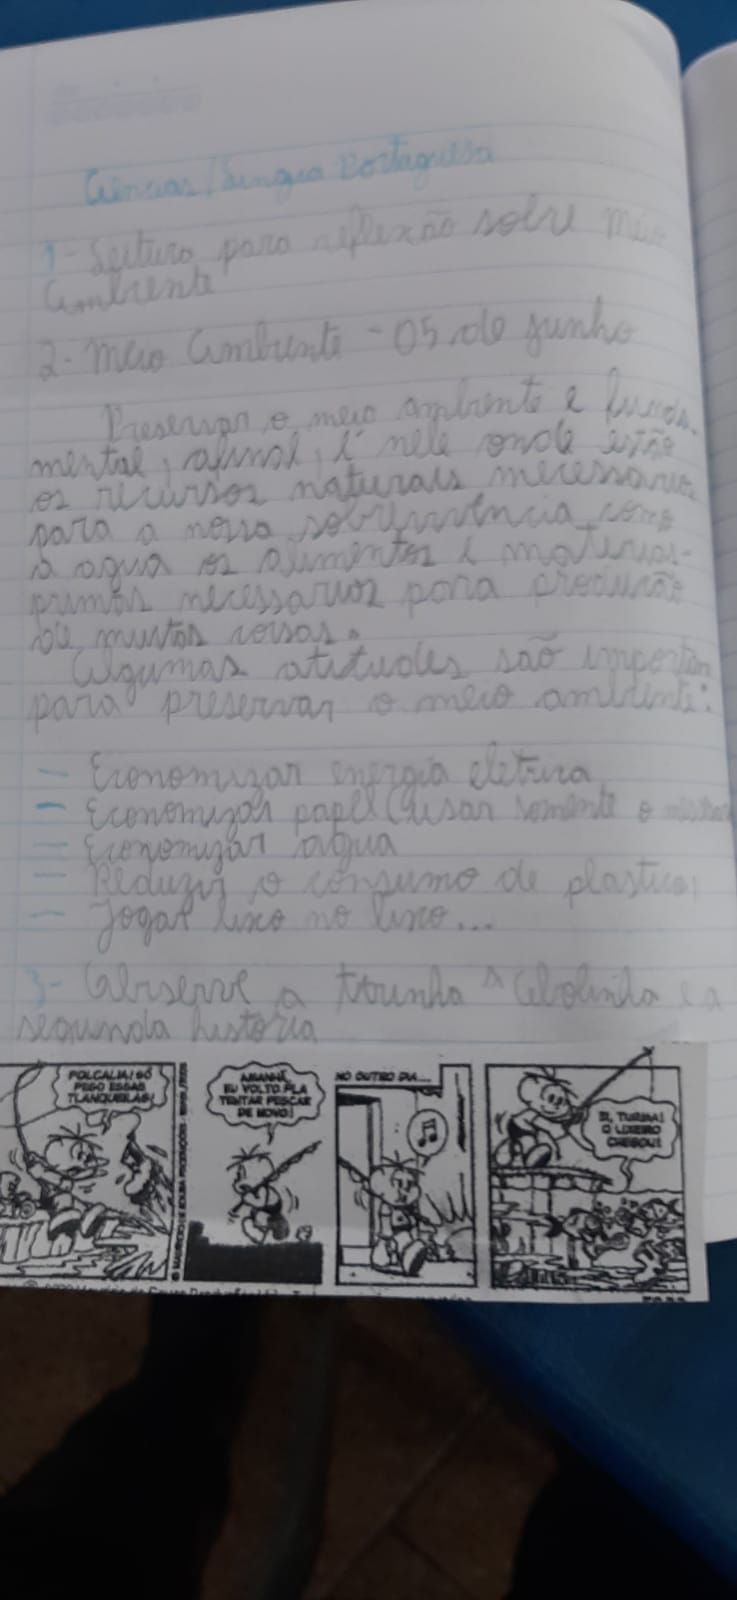 Ciências/Língua Portuguesa
1- Leitura para reflexão sobre Meio
Ambiente
2- Meio Ambiente - 05 de junho
Preservar o meio ambiente e funda-
mental, afinal, é nele onde estão
os recursos naturais necessarios
para a nossa sobrevivência como
a agua os alimentos e materias-
primas necessarios para produção
de muitas coisas.
Algumas atitudes são importan
para preservar o meio ambiente:
- Economizar energia eletrica
- Economizar papel (usar somente o
- Economizar agua
- Reduzir o consumo de plastico;
- Jogar lixo no lixo...
3- Observe a tirinha Cebolinha e a
segunda historia
POLCALIA! SÓ
PEGO ESSAS
TLANQUEILAS!
AMANHÃ
EU VOLTO PLA
TENTAR PESCAR
DE NOVO!
NO OUTRO DIA...
EI, TURMA!
O LIXEIRO
CHEGOU!